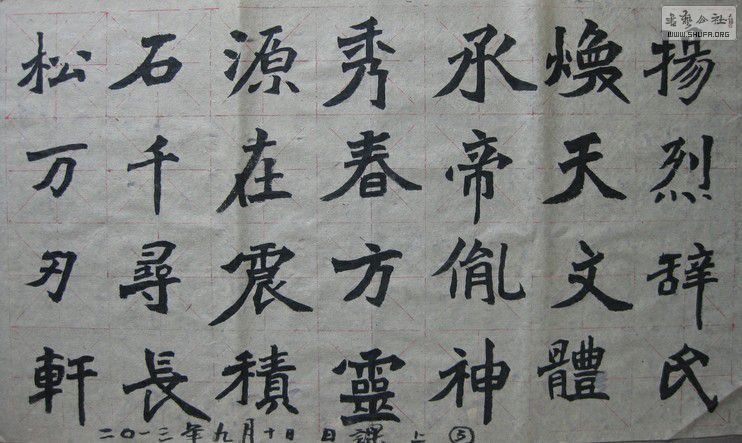 揚烈辞氏
煥天文體
承帝胤神
秀春方靈
源在震積
石千尋長
松万刃軒
二〇一三年九月十日 日課 上 ⑤
書藝公社
WWW.SHUFA.ORG